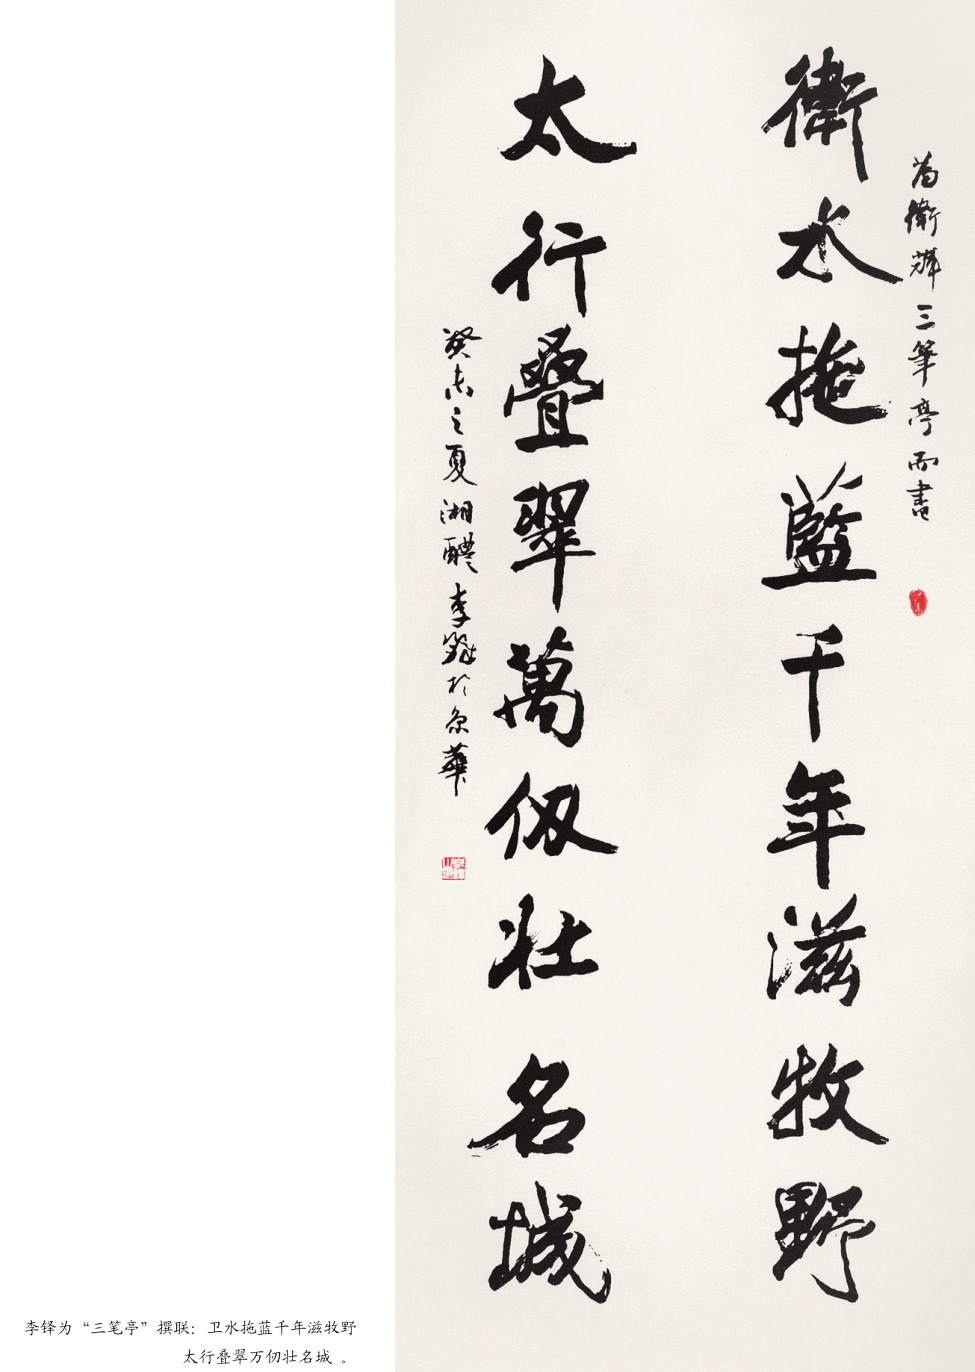 為衛輝三筆亭而書
衛水拖藍千年滋牧野
太行疊翠萬仞壯名城
癸未之夏湘醴李鐸於京華
李铎为“三笔亭”撰联：卫水拖蓝千年滋牧野
太行叠翠万仞壮名城 。